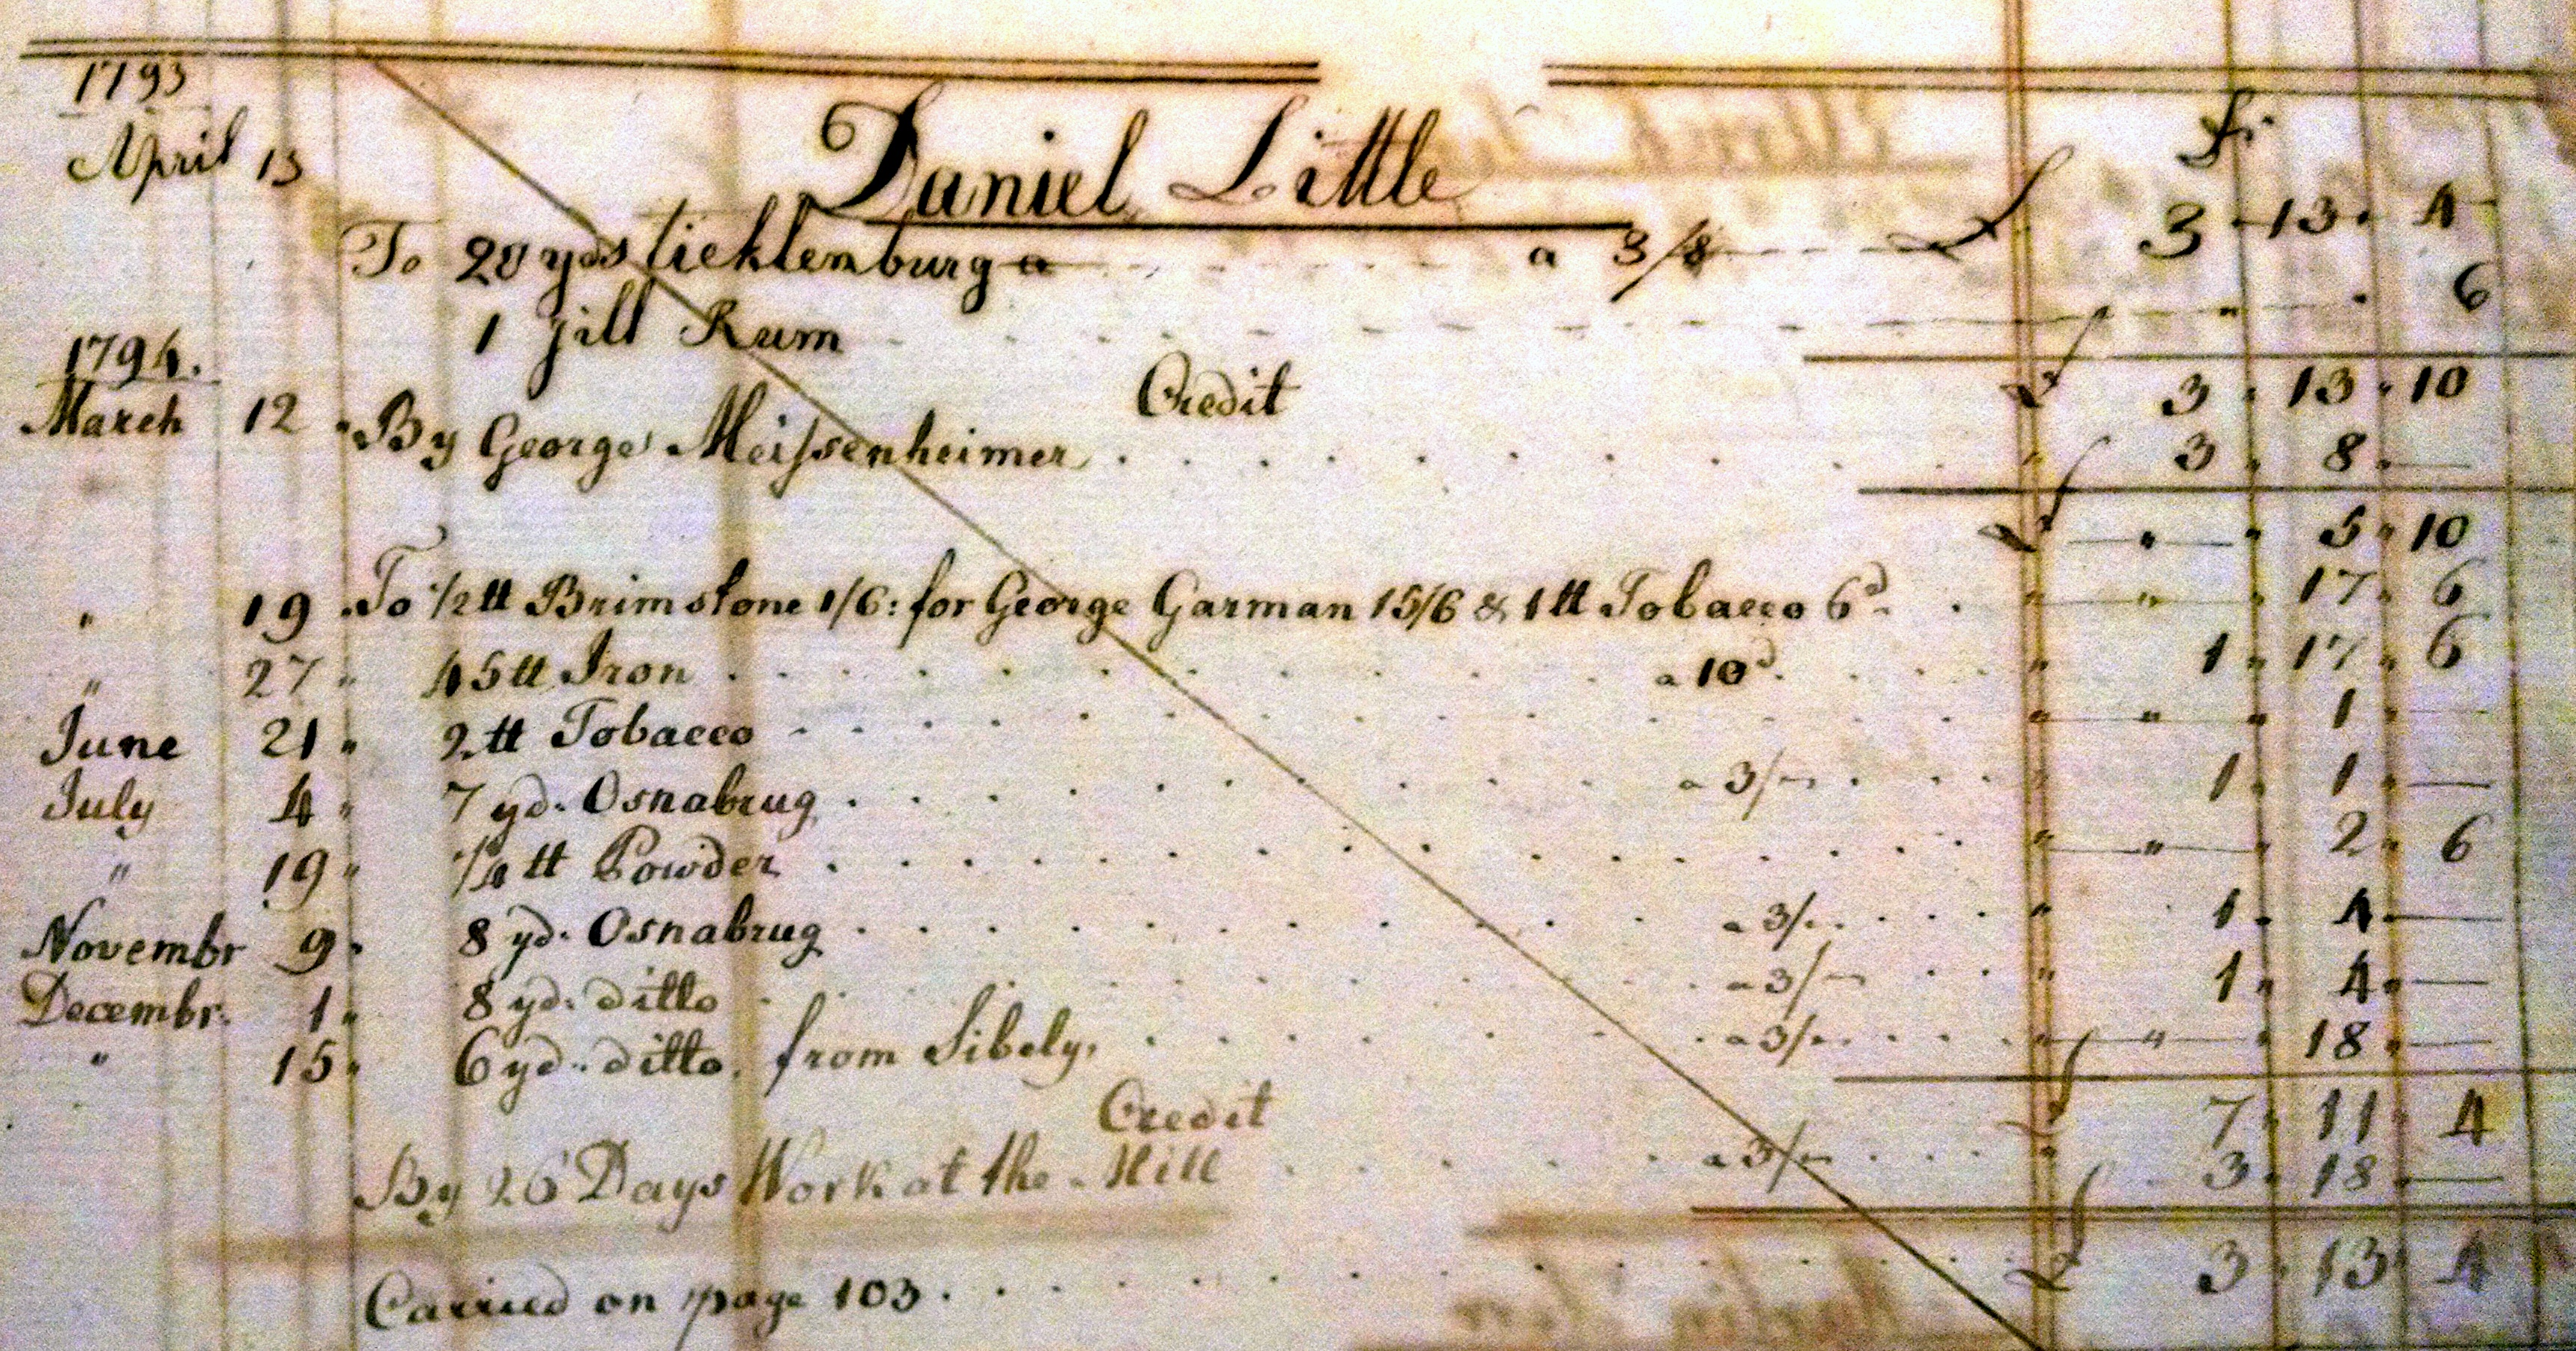 1793
April 13
Daniel Little Dr.
To 20 yds ticklenburg a 3/8 £ 3 " 13 " 4
1 jill Rum " " 6
£ 3 " 13 " 10
1794.
Credit
March 12 " By George Meissenheimer " 3 " 8 " —
£ " 5 " 10
" 19 " To 1/2 tt Brimstone 1/6: for George Garman 15/6 & 1 tt Tobacco 6d " " 17 " 6
" 27 " 45 tt Iron a 10d " 1 " 17 " 6
June 21 " 2 tt Tobacco " " " 1 " —
July 4 " 7 yd. Osnabrug a 3/– " 1 " 1 " —
" 19 " 1/4 tt Powder " " " 2 " 6
Novembr 9 " 8 yd. Osnabrug a 3/– " 1 " 4 " —
Decembr. 1 " 8 yd. ditto a 3/– " 1 " 4 " —
" 15 " 6 yd. ditto, from Sibely, a 3/– " " " 18 " —
£ 7 " 11 " 4
Credit
By 26 Days Work at the Mill a 3/– " 3 " 18 " —
Carried on page 103 £ 3 " 13 " 4